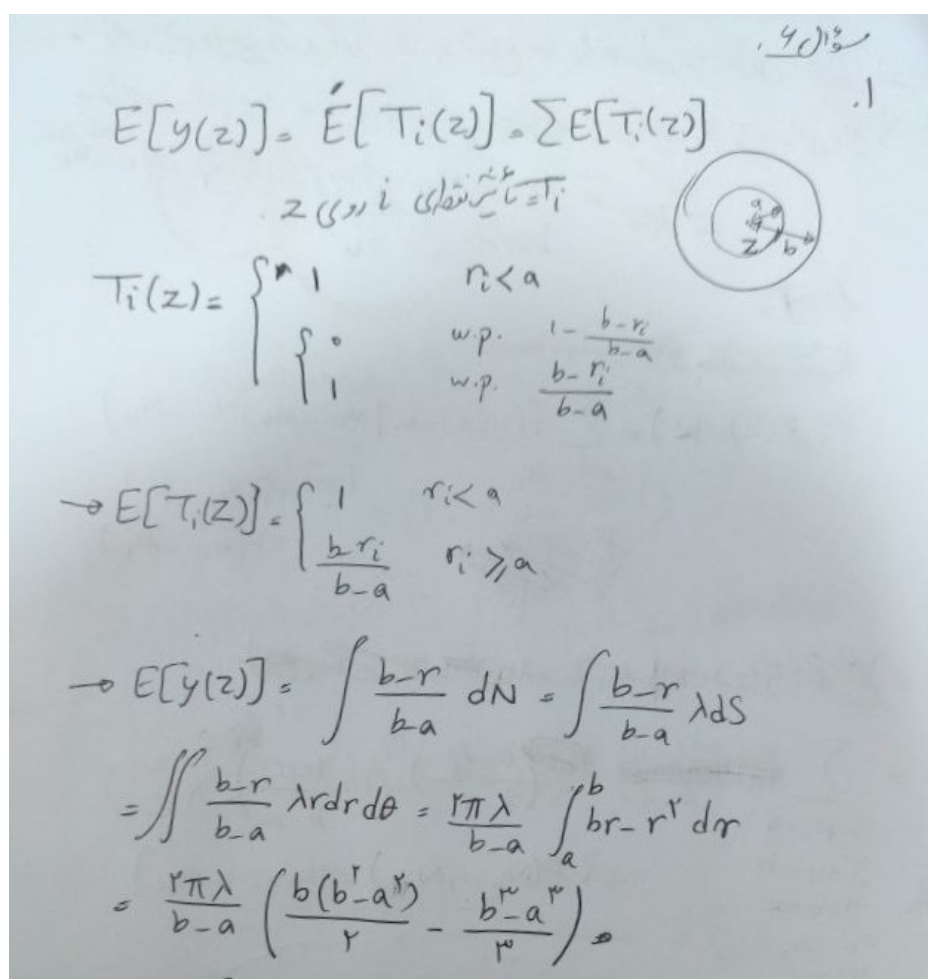 سوال ۶.
۱.
E[y(z)] = E[T_i(z)] = ∑E[T_i(z)]
T_i = تاثیر نقطه‌ی i روی z.
a
z
b
T_i(z) = { 1 r_i < a
{ ۰ w.p. 1 - \frac{b-r_i}{b-a}
1 w.p. \frac{b-r_i}{b-a}
→ E[T_i(z)] = { 1 r_i < a
\frac{b r_i}{b-a} r_i ≥ a
→ E[y(z)] = ∫ \frac{b-r}{b-a} dN = ∫ \frac{b-r}{b-a} λdS
= ∬ \frac{b-r}{b-a} λrdrdθ = \frac{۲πλ}{b-a} ∫_a^b br - r^۲ dr
= \frac{۲πλ}{b-a} ( \frac{b(b^۲-a^۲)}{۲} - \frac{b^۳-a^۳}{۳} ).